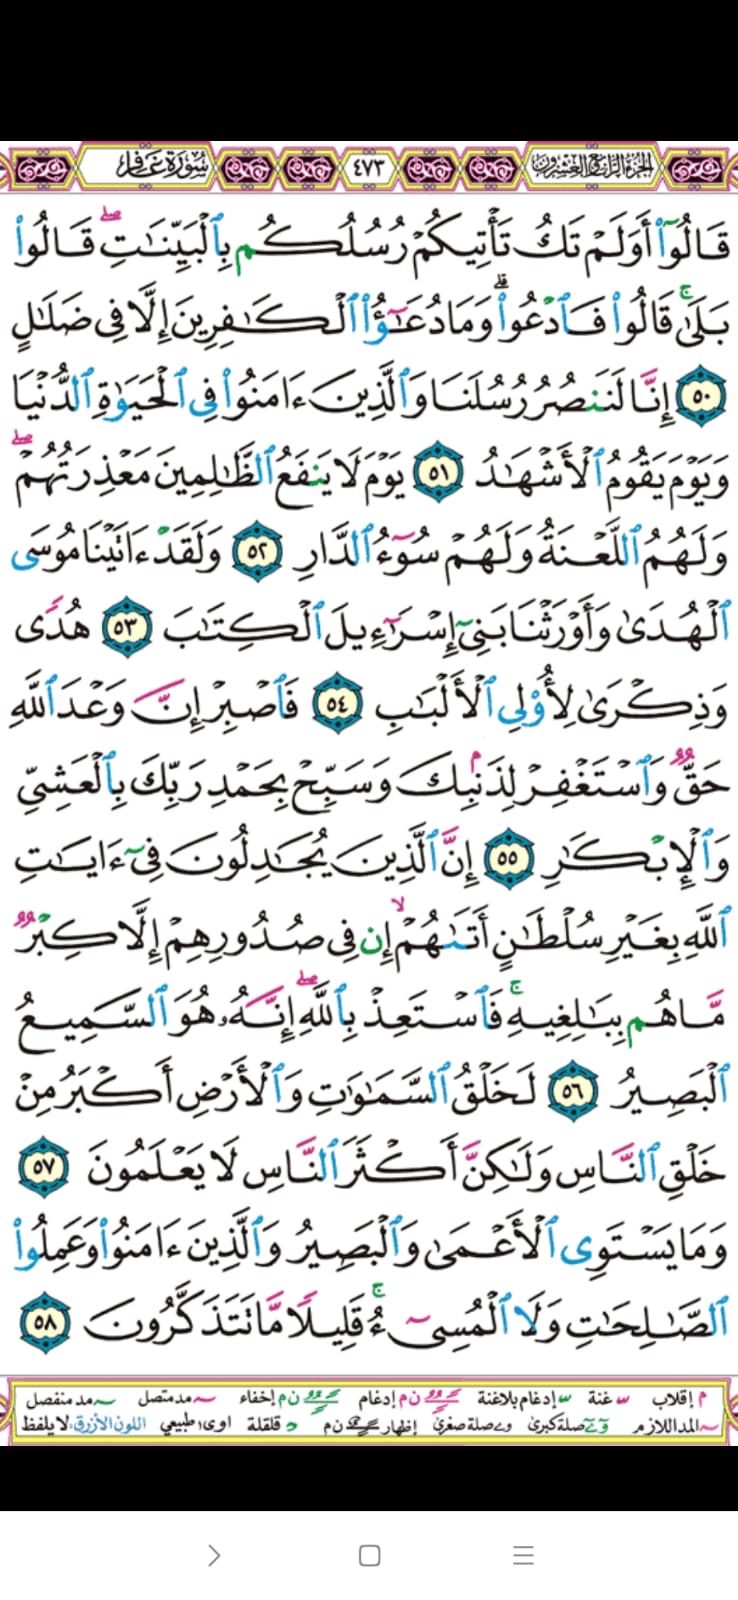 الجزء الرابع والعشرون ٤٧٣ سورة غافر
قَالُوٓا۟ أَوَلَمْ تَكُ تَأْتِيكُمْ رُسُلُكُم بِٱلْبَيِّنَـٰتِ ۖ قَالُوا۟
بَلَىٰ ۚ قَالُوا۟ فَٱدْعُوا۟ ۗ وَمَا دُعَـٰٓؤُا۟ ٱلْكَـٰفِرِينَ إِلَّا فِى ضَلَـٰلٍ
٥٠ إِنَّا لَنَنصُرُ رُسُلَنَا وَٱلَّذِينَ ءَامَنُوا۟ فِى ٱلْحَيَوٰةِ ٱلدُّنْيَا
وَيَوْمَ يَقُومُ ٱلْأَشْهَـٰدُ ٥١ يَوْمَ لَا يَنفَعُ ٱلظَّـٰلِمِينَ مَعْذِرَتُهُمْ ۖ
وَلَهُمُ ٱللَّعْنَةُ وَلَهُمْ سُوٓءُ ٱلدَّارِ ٥٢ وَلَقَدْ ءَاتَيْنَا مُوسَى
ٱلْهُدَىٰ وَأَوْرَثْنَا بَنِىٓ إِسْرَٰٓءِيلَ ٱلْكِتَـٰبَ ٥٣ هُدًى
وَذِكْرَىٰ لِأُو۟لِى ٱلْأَلْبَـٰبِ ٥٤ فَٱصْبِرْ إِنَّ وَعْدَ ٱللَّهِ
حَقٌّ وَٱسْتَغْفِرْ لِذَنۢبِكَ وَسَبِّحْ بِحَمْدِ رَبِّكَ بِٱلْعَشِىِّ
وَٱلْإِبْكَـٰرِ ٥٥ إِنَّ ٱلَّذِينَ يُجَـٰدِلُونَ فِىٓ ءَايَـٰتِ
ٱللَّهِ بِغَيْرِ سُلْطَـٰنٍ أَتَىٰهُمْ ۙ إِن فِى صُدُورِهِمْ إِلَّا كِبْرٌ
مَّا هُم بِبَـٰلِغِيهِ ۚ فَٱسْتَعِذْ بِٱللَّهِ ۖ إِنَّهُۥ هُوَ ٱلسَّمِيعُ
ٱلْبَصِيرُ ٥٦ لَخَلْقُ ٱلسَّمَـٰوَٰتِ وَٱلْأَرْضِ أَكْبَرُ مِنْ
خَلْقِ ٱلنَّاسِ وَلَـٰكِنَّ أَكْثَرَ ٱلنَّاسِ لَا يَعْلَمُونَ ٥٧
وَمَا يَسْتَوِى ٱلْأَعْمَىٰ وَٱلْبَصِيرُ وَٱلَّذِينَ ءَامَنُوا۟ وَعَمِلُوا۟
ٱلصَّـٰلِحَـٰتِ وَلَا ٱلْمُسِىٓءُ ۚ قَلِيلًا مَّا تَتَذَكَّرُونَ ٥٨
م إقلاب غنة إدغام بلاغنة ن م إدغام ن م إخفاء مد متصل مد منفصل
المد اللازم صلة كبرى صلة صغرى إظهار ن م قلقلة اوى طبيعي اللون الأزرق: لا يلفظ